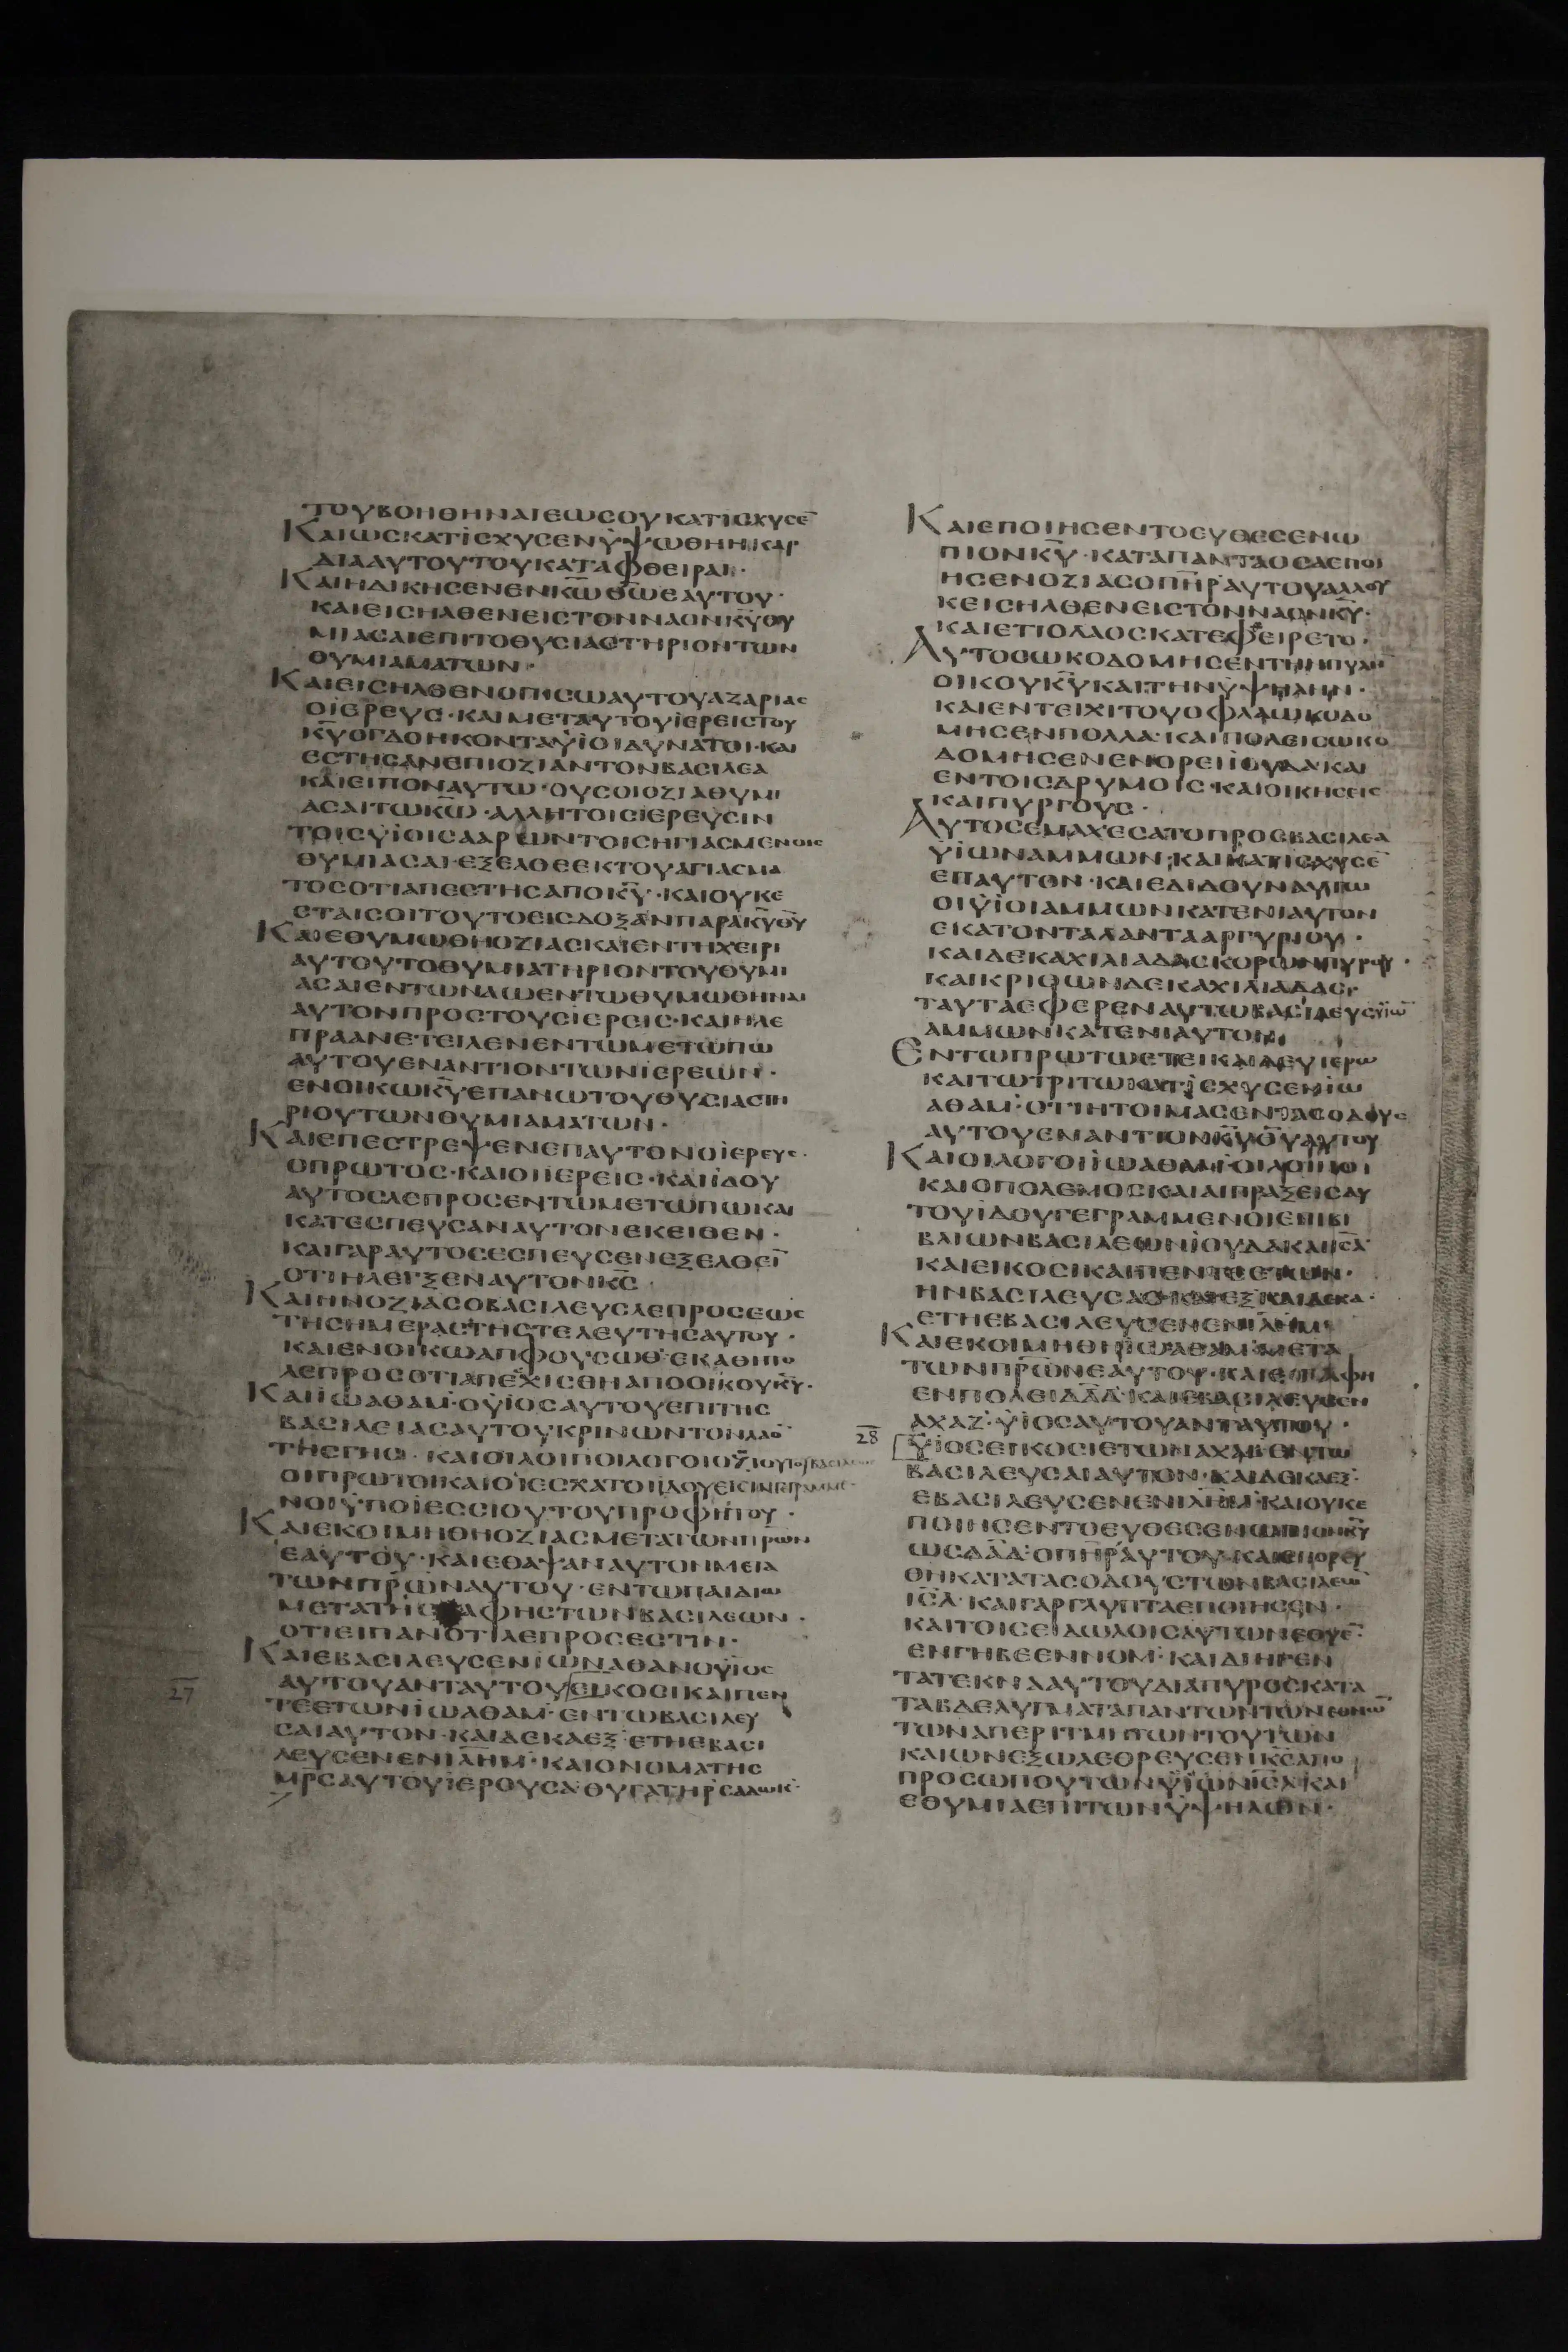 ΤΟΥΒΟΗΘΗΝΑΙΕΩϹΟΥΚΑΤΙϹΧΥϹΕ̅
ΚΑΙΩϹΚΑΤΙϹΧΥϹΕΝΫΨΩΘΗΗΚΑΡ
ΔΙΑΑΥΤΟΥΤΟΥΚΑΤΑΦΘΕΙΡΑΙ·
ΚΑΙΗΔΙΚΗϹΕΝΕΝΚ̅Ω̅Θ̅Ω̅ΕΑΥΤΟΥ·
ΚΑΙΕΙϹΗΛΘΕΝΕΙϹΤΟΝΝΑΟΝΚ̅Υ̅ΘΥ
ΜΙΑϹΑΙΕΠΙΤΟΘΥϹΙΑϹΤΗΡΙΟΝΤΩΝ
ΘΥΜΙΑΜΑΤΩΝ·
ΚΑΙΕΙϹΗΛΘΕΝΟΠΙϹΩΑΥΤΟΥΑΖΑΡΙΑϹ
ΟΪΕΡΕΥϹ·ΚΑΙΜΕΤΑΥΤΟΥΪΕΡΕΙϹΤΟΥ
Κ̅Υ̅ΟΓΔΟΗΚΟΝΤΑΫΙΟΙΔΥΝΑΤΟΙ·ΚΑΙ
ΕϹΤΗϹΑΝΕΠΙΟΖΙΑΝΤΟΝΒΑϹΙΛΕΑ
ΚΑΙΕΙΠΟΝΑΥΤΩ·ΟΥϹΟΙΟΖΙΑΘΥΜΙ
ΑϹΑΙΤΩΚ̅Ω̅·ΑΛΛΗΤΟΙϹΙΕΡΕΥϹΙΝ
ΤΟΙϹΫΙΟΙϹΑΑΡΩΝΤΟΙϹΗΓΙΑϹΜΕΝΟΙϹ
ΘΥΜΙΑϹΑΙ·ΕΞΕΛΘΕΕΚΤΟΥΑΓΙΑϹΜΑ
ΤΟϹΟΤΙΑΠΕϹΤΗϹΑΠΟΚ̅Υ̅·ΚΑΙΟΥΚΕ
ϹΤΑΙϹΟΙΤΟΥΤΟΕΙϹΔΟΞΑΝΠΑΡΑΚ̅Υ̅Θ̅Υ̅
ΚΑΙΕΘΥΜΩΘΗΟΖΙΑϹΚΑΙΕΝΤΗΧΕΙΡΙ
ΑΥΤΟΥΤΟΘΥΜΙΑΤΗΡΙΟΝΤΟΥΘΥΜΙ
ΑϹΑΙΕΝΤΩΝΑΩΕΝΤΩΘΥΜΩΘΗΝΑΙ
ΑΥΤΟΝΠΡΟϹΤΟΥϹΙΕΡΕΙϹ·ΚΑΙΗΛΕ
ΠΡΑΑΝΕΤΕΙΛΕΝΕΝΤΩΜΕΤΩΠΩ
ΑΥΤΟΥΕΝΑΝΤΙΟΝΤΩΝΙΕΡΕΩΝ·
ΕΝΟΙΚΩΚ̅Υ̅ΕΠΑΝΩΤΟΥΘΥϹΙΑϹΤΗ
ΡΙΟΥΤΩΝΘΥΜΙΑΜΑΤΩΝ·
ΚΑΙΕΠΕϹΤΡΕΨΕΝΕΠΑΥΤΟΝΟΙΕΡΕΥϹ·
ΟΠΡΩΤΟϹ·ΚΑΙΟΙΙΕΡΕΙϹ·ΚΑΙΙΔΟΥ
ΑΥΤΟϹΛΕΠΡΟϹΕΝΤΩΜΕΤΩΠΩΚΑΙ
ΚΑΤΕϹΠΕΥϹΑΝΑΥΤΟΝΕΚΕΙΘΕΝ·
ΚΑΙΓΑΡΑΥΤΟϹΕϹΠΕΥϹΕΝΕΞΕΛΘΕΙ̅
ΟΤΙΗΛΕΓΞΕΝΑΥΤΟΝΚ̅Ϲ̅·
ΚΑΙΗΝΟΖΙΑϹΟΒΑϹΙΛΕΥϹΛΕΠΡΟϹΕΩϹ
ΤΗϹΗΜΕΡΑϹΤΗϹΤΕΛΕΥΤΗϹΑΥΤΟΥ·
ΚΑΙΕΝΟΙΚΩΑΠΦΟΥϹΩΘ·ΕΚΑΘΗΤΟ
ΛΕΠΡΟϹΟΤΙΑΠΕΧΙϹΘΗΑΠΟΟΙΚΟΥΚ̅Υ̅·
ΚΑΙΙΩΑΘΑΜ·ΟΫΙΟϹΑΥΤΟΥΕΠΙΤΗϹ
ΒΑϹΙΛΕΙΑϹΑΥΤΟΥΚΡΙΝΩΝΤΟΝΛΑΟ̅
ΤΗϹΓΗϹ·ΚΑΙΟΙΛΟΙΠΟΙΛΟΓΟΙΟΖΙΟΥ
ΟΙΠΡΩΤΟΙΚΑΙΟΙΕϹΧΑΤΟΙ
ΝΟΙΫΠΟΙΕϹϹΙΟΥΤΟΥΠΡΟΦΗΤΟΥ·
ΚΑΙΕΚΟΙΜΗΘΗΟΖΙΑϹΜΕΤΑΤΩΝΠ̅Ρ̅Ω̅Ν̅
ΕΑΥΤΟΥ·ΚΑΙΕΘΑΨΑΝΑΥΤΟΝΜΕΤΑ
ΤΩΝΠ̅Ρ̅Ω̅Ν̅ΑΥΤΟΥ·ΕΝΤΩΠΑΙΔΙΩ
ΜΕΤΑΤΗϹΤΑΦΗϹΤΩΝΒΑϹΙΛΕΩΝ·
ΟΤΙΕΙΠΑΝΟΤΙΛΕΠΡΟϹΕϹΤΙΝ·
ΚΑΙΕΒΑϹΙΛΕΥϹΕΝΙΩΝΑΘΑΝΟΥΙΟϹ
27 ΑΥΤΟΥΑΝΤΑΥΤΟΥΕΙΚΟϹΙΚΑΙΠΕΝ
ΤΕΕΤΩΝΙΩΑΘΑΜ·ΕΝΤΩΒΑϹΙΛΕΥ
ϹΑΙΑΥΤΟΝ·ΚΑΙΔΕΚΑΕΞ·ΕΤΗΕΒΑϹΙ
ΛΕΥϹΕΝΕΝΙ̅Λ̅Η̅Μ̅·ΚΑΙΟΝΟΜΑΤΗϹ
Μ̅Ρ̅Ϲ̅ΑΥΤΟΥΙΕΡΟΥϹΑ·ΘΥΓΑΤΗΡϹΑΔΩΚ·
ΚΑΙΕΠΟΙΗϹΕΝΤΟΕΥΘΕϹΕΝΩ
ΠΙΟΝΚ̅Υ̅·ΚΑΤΑΠΑΝΤΑΟϹΑΕΠΟΙ
ΗϹΕΝΟΖΙΑϹΟΠ̅Η̅Ρ̅ΑΥΤΟΥΑΛΛΟΥ
ΚΕΙϹΗΛΘΕΝΕΙϹΤΟΝΝΑΟΝΚ̅Υ̅·
ΚΑΙΕΤΙΟΛΑΟϹΚΑΤΕΦΕΙΡΕΤΟ·
ΑΥΤΟϹΩΚΟΔΟΜΗϹΕΝΤΗΝΠΥΛΗ̅
ΟΙΚΟΥΚ̅Υ̅ΚΑΙΤΗΝΫΨΗΛΗΝ·
ΚΑΙΕΝΤΕΙΧΙΤΟΥΟΦΛΑΩΚΟΔΟ
ΜΗϹΕΝΠΟΛΛΑ·ΚΑΙΠΟΛΕΙϹΩΚΟ
ΔΟΜΗϹΕΝΕΝΟΡΕΙΙΟΥΔΑΚΑΙ
ΕΝΤΟΙϹΔΡΥΜΟΙϹ·ΚΑΙΟΙΚΗϹΕΙϹ
ΚΑΙΠΥΡΓΟΥϹ·
ΑΥΤΟϹΕΜΑΧΕϹΑΤΟΠΡΟϹΒΑϹΙΛΕΑ
ΫΙΩΝΑΜΜΩΝ·ΚΑΙΚΑΤΙϹΧΥϹΕ̅
ΕΠΑΥΤΟΝ·ΚΑΙΕΔΙΔΟΥΝΑΥΤΩ
ΟΙΫΙΟΙΑΜΜΩΝΚΑΤΕΝΙΑΥΤΟΝ
ΕΚΑΤΟΝΤΑΛΑΝΤΑΑΡΓΥΡΙΟΥ·
ΚΑΙΔΕΚΑΧΙΛΙΑΔΑϹΚΟΡΩΝΠΥΡΟΥ·
ΚΑΙΚΡΙΘΩΝΔΕΚΑΧΙΛΙΑΔΑϹ·
ΤΑΥΤΑΕΦΕΡΕΝΑΥΤΩΒΑϹΙΛΕΥϹΫΙΩ̅
ΑΜΜΩΝΚΑΤΕΝΙΑΥΤΟΝ·
ΕΝΤΩΠΡΩΤΩΕΤΕΙΚΑΙΔΕΥΤΕΡΩ
ΚΑΙΤΩΤΡΙΤΩΚΑΤΙϹΧΥϹΕΝΙΩ
ΑΘΑΜ·ΟΤΙΗΤΟΙΜΑϹΕΝΤΑϹΟΔΟΥϹ
ΑΥΤΟΥΕΝΑΝΤΙΟΝΚ̅Υ̅Θ̅Υ̅ΑΥΤΟΥ
ΚΑΙΟΙΛΟΓΟΙΙΩΑΘΑΜ·ΟΙΛΟΙΠΟΙ
ΚΑΙΟΠΟΛΕΜΟϹΚΑΙΑΙΠΡΑΞΕΙϹΑΥ
ΤΟΥΙΔΟΥΓΕΓΡΑΜΜΕΝΟΙΕΠΙΒΙ
ΒΛΙΩΝΒΑϹΙΛΕΩΝΙΟΥΔΑΚΑΙΙ̅Ϲ̅Λ̅
ΚΑΙΕΙΚΟϹΙΚΑΙΠΕΝΤΕΕΤΩΝ·
ΗΝΒΑϹΙΛΕΥϹΑϹ
ΕΤΗΕΒΑϹΙΛΕΥϹΕΝΕΝΙ̅Λ̅Η̅Μ̅·
ΚΑΙΕΚΟΙΜΗΘΗΙΩΑΘΑΜ·ΜΕΤΑ
ΤΩΝΠ̅Ρ̅Ω̅Ν̅ΕΑΥΤΟΥ·ΚΑΙΕΤΑΦΗ
ΕΝΠΟΛΕΙΔ̅Α̅Δ̅·ΚΑΙΕΒΑϹΙΛΕΥϹΕΝ
ΑΧΑΖ·ΫΙΟϹΑΥΤΟΥΑΝΤΑΥΤΟΥ·
28 ΫΙΟϹΕΙΚΟϹΙΕΤΩΝΑΧΑΖΕΝΤΩ
ΒΑϹΙΛΕΥϹΑΙΑΥΤΟΝ·ΚΑΙΔΕΚΑΕΞ·
ΕΒΑϹΙΛΕΥϹΕΝΕΝΙ̅Λ̅Η̅Μ̅·ΚΑΙΟΥΚΕ
ΠΟΙΗϹΕΝΤΟΕΥΘΕϹΕΝΩΠΙΟΝΚ̅Υ̅
ΩϹΔ̅Α̅Δ̅·ΟΠ̅Η̅Ρ̅ΑΥΤΟΥ·ΚΑΙΕΠΟΡΕΥ
ΘΗΚΑΤΑΤΑϹΟΔΟΥϹΤΩΝΒΑϹΙΛΕΩ̅
Ι̅Ϲ̅Λ̅·ΚΑΙΓΑΡΓΛΥΠΤΑΕΠΟΙΗϹΕΝ·
ΚΑΙΤΟΙϹΕΙΔΩΛΟΙϹΑΥΤΩΝΕΘΥΕ̅·
ΕΝΓΗΒΕΕΝΝΟΜ·ΚΑΙΔΙΗΓΕΝ
ΤΑΤΕΚΝΑΑΥΤΟΥΔΙΑΠΥΡΟϹΚΑΤΑ
ΤΑΒΔΕΛΥΓΜΑΤΑΠΑΝΤΩΝΤΩΝΕΘΝΩ̅
ΤΩΝΑΠΕΡΙΤΜΗΤΩΝΤΟΥΤΩΝ
ΚΑΙΩΝΕΞΩΛΕΘΡΕΥϹΕΝΚ̅Ϲ̅ΑΠΟ
ΠΡΟϹΩΠΟΥΤΩΝΫΙΩΝΙ̅Ϲ̅Λ̅·ΚΑΙ
ΕΘΥΜΙΑΕΠΙΤΩΝΫΨΗΛΩΝ·